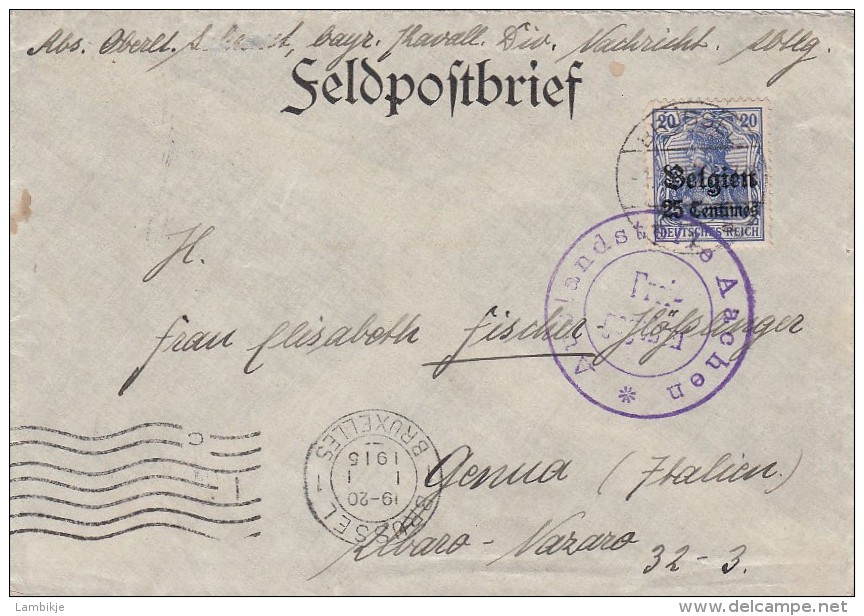 Abs. Oberlt. bayr. Kavall. Div. Nachricht.
Feldpostbrief
BRÜSSEL
20 20
Belgien
25 Centimes
DEUTSCHES REICH
Auslandstelle Aachen *
Frei
H.
Frau Elisabeth Fischer Höfslinger
BRÜSSEL 1
19-20
1 1
1915
BRUXELLES 1
Genua (Italien.
Albaro - Nazaro 32-3.
Lambikje
http://www.delcampe.net